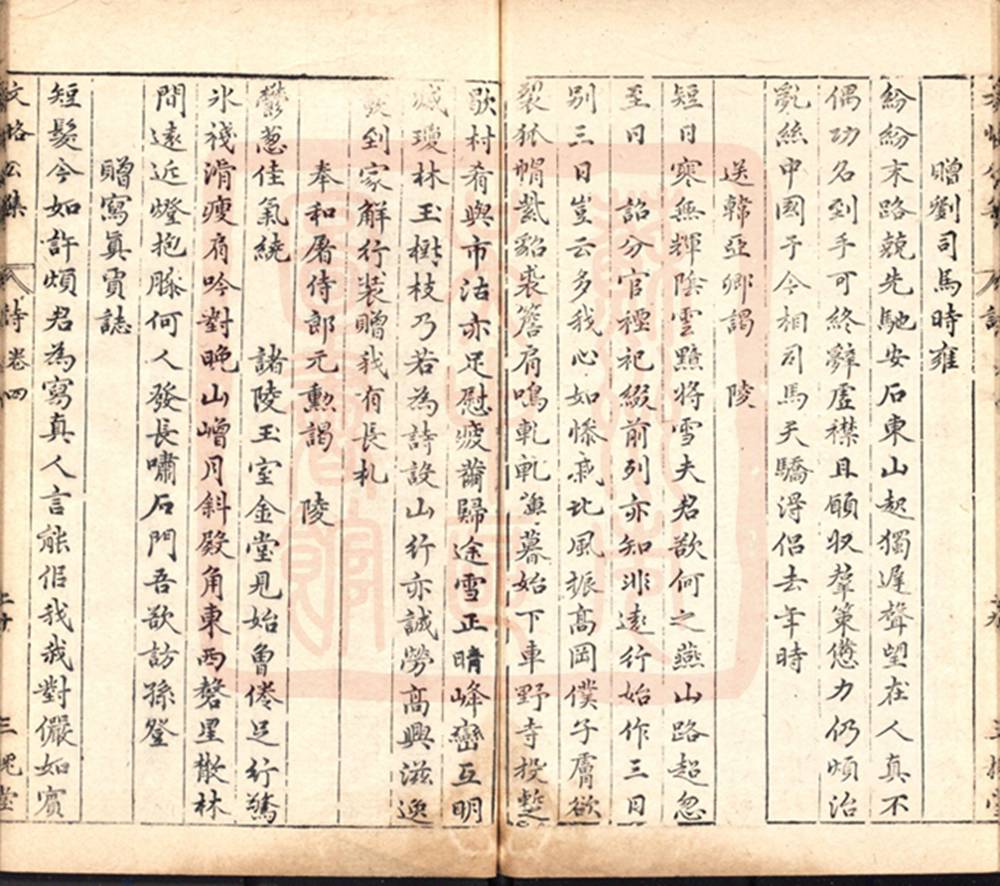 贈劉司馬時雍
紛紛末路競先馳安石東山起獨遲聲望在人真不
偶功名到手可終辭虛襟且願収羣策憊力仍煩治
亂絲申國于今相司馬天驕淂侣去年時
送韓亞卿謁　陵
短日寒無輝陰雲黯將雪夫君欲何之燕山路超忽
至日　詔分官禋祀綴前列亦知非遠行始作三日
别三日豈云多我心如惨慼北風振高岡僕子膚欲
裂狐㡌紫貂裘簷肩鳴軋軋薄暮始下車野寺投蹔
歇村肴與市沽亦足慰疲薾歸途雪正晴峰巒互明
滅瓊林玉樹枝乃若為詩設山行亦誠勞高興滋逸
到家解行裝贈我有長札
奉和屠侍郎元勳謁　陵
鬱葱佳氣繞　諸陵玉室金堂見始曾倦足行驚
氷棧滑瘦肩吟對晚山嶒月斜殿角東西磬星散林
間遠近燈抱膝何人發長嘯石門吾欲訪孫登
贈寫真賈誌
短髮今如許煩君為寫真人言能侣我我對儼如賓
詩卷四